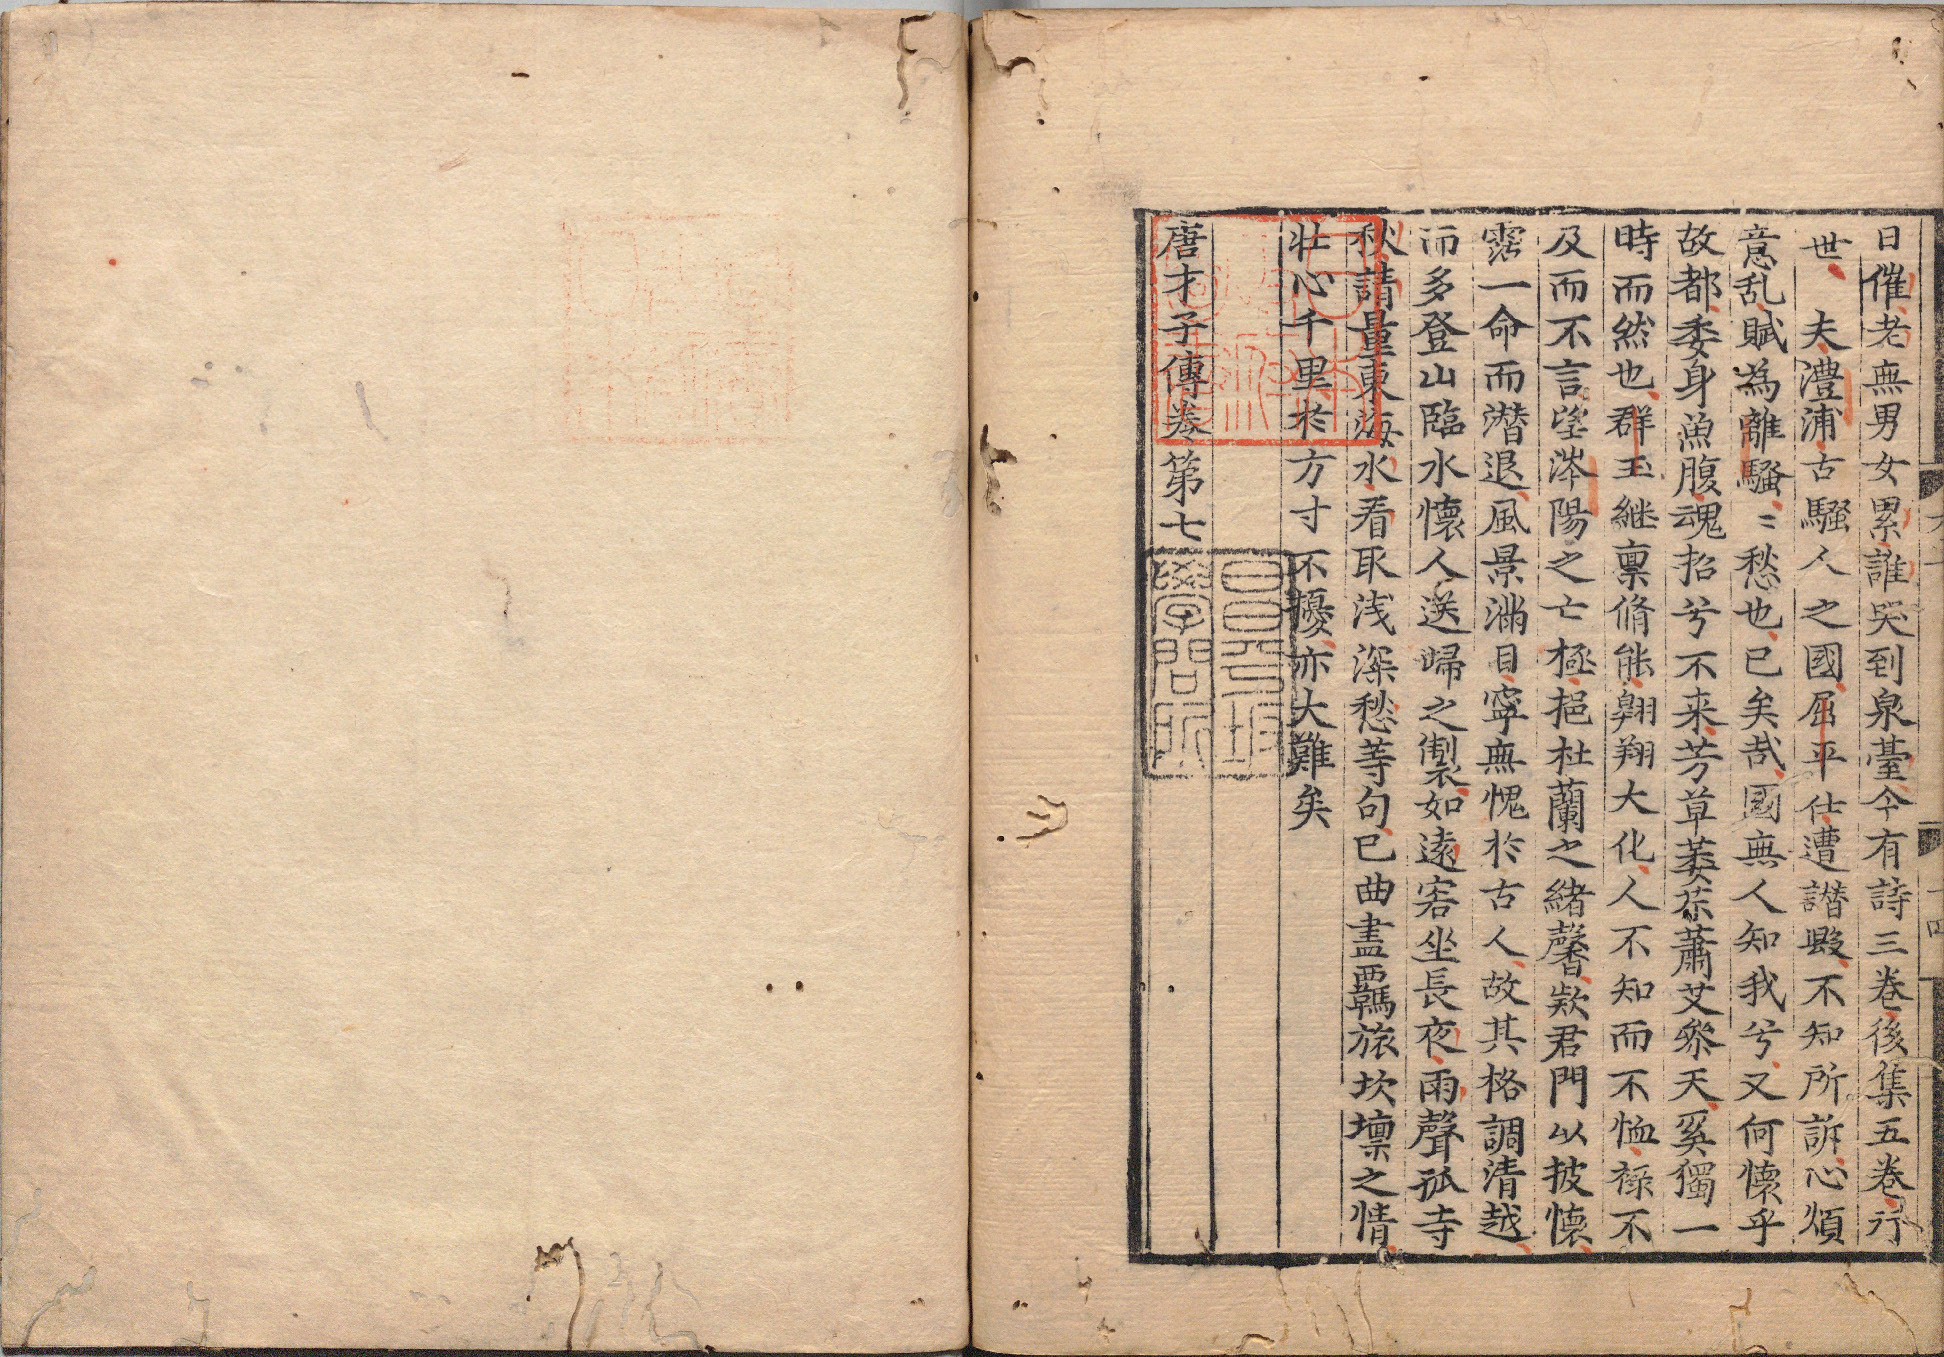 日催老無男女累誰哭到泉臺今有詩三卷後集五卷行
世　夫澧浦古騷人之國屈平仕遭譖毀不知所訴心煩
意乱賦為離騷〻愁也已矣哉國無人知我兮又何懷乎
故都委身漁腹魂招兮不来芳草萎苶蕭艾參天奚獨一
時而然也群玉継稟脩能翱翔大化人不知而不恤禄不
及而不言望涔陽之亡極挹杜蘭之緒馨欵君門以披懷
霑一命而潜退風景滿目寧無愧於古人故其格調清越
而多登山臨水懷人送歸之製如遠客坐長夜雨聲孤寺
秋請量東海水看取浅深愁等句已曲盡羈旅坎壈之情
壮心千里於方寸不擾亦大難矣
唐才子傳卷第七
昌平坂
學問所